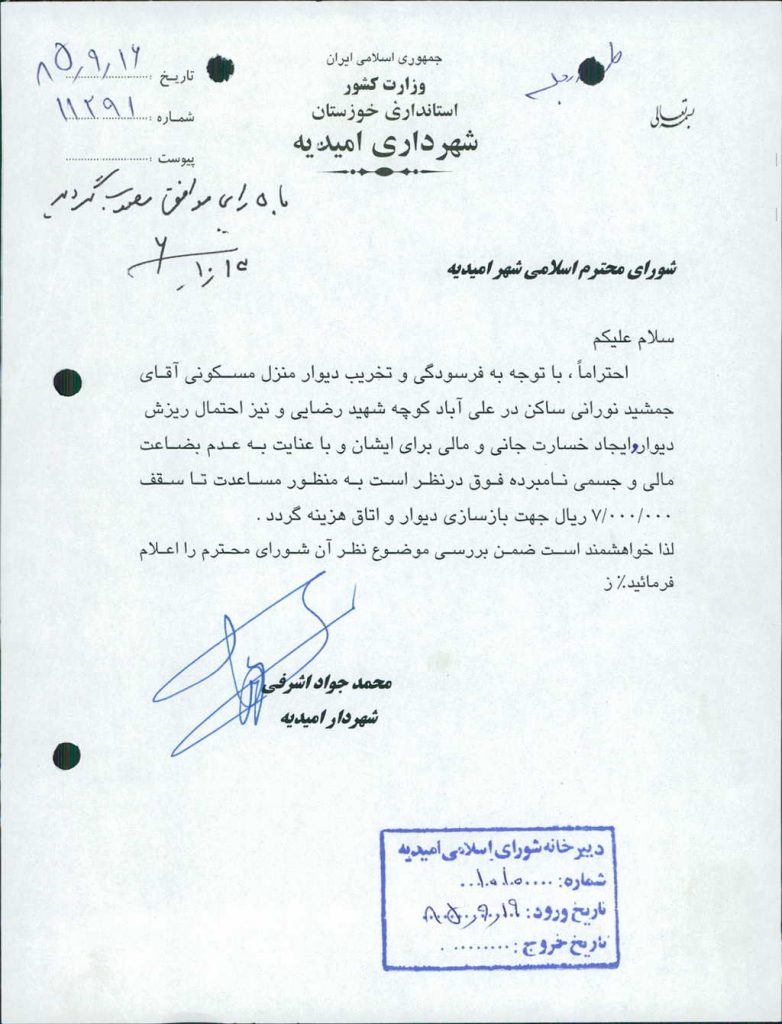 بسمه تعالی
جمهوری اسلامی ایران
وزارت کشور
استانداری خوزستان
شهرداری امیدیه
تاریخ : ۸۵٫۹٫۱۶
شماره : ۱۱۲۹۱
پیوست :
با ۵ رای موافق مصوب گردید
شورای محترم اسلامی شهر امیدیه
سلام علیکم
احتراماً ، با توجه به فرسودگی و تخریب دیوار منزل مسکونی آقای
جمشید نورانی ساکن در علی آباد کوچه شهید رضایی و نیز احتمال ریزش
دیوار و ایجاد خسارت جانی و مالی برای ایشان و با عنایت به عدم بضاعت
مالی و جسمی نامبرده فوق درنظر است به منظور مساعدت تا سقف
۷/۰۰۰/۰۰۰ ریال جهت بازسازی دیوار و اتاق هزینه گردد .
لذا خواهشمند است ضمن بررسی موضوع نظر آن شورای محترم را اعلام
فرمائید٪ ز
محمد جواد اشرفی
شهردار امیدیه
دبیرخانه شورای اسلامی امیدیه
شماره :
تاریخ ورود :
تاریخ خروج :